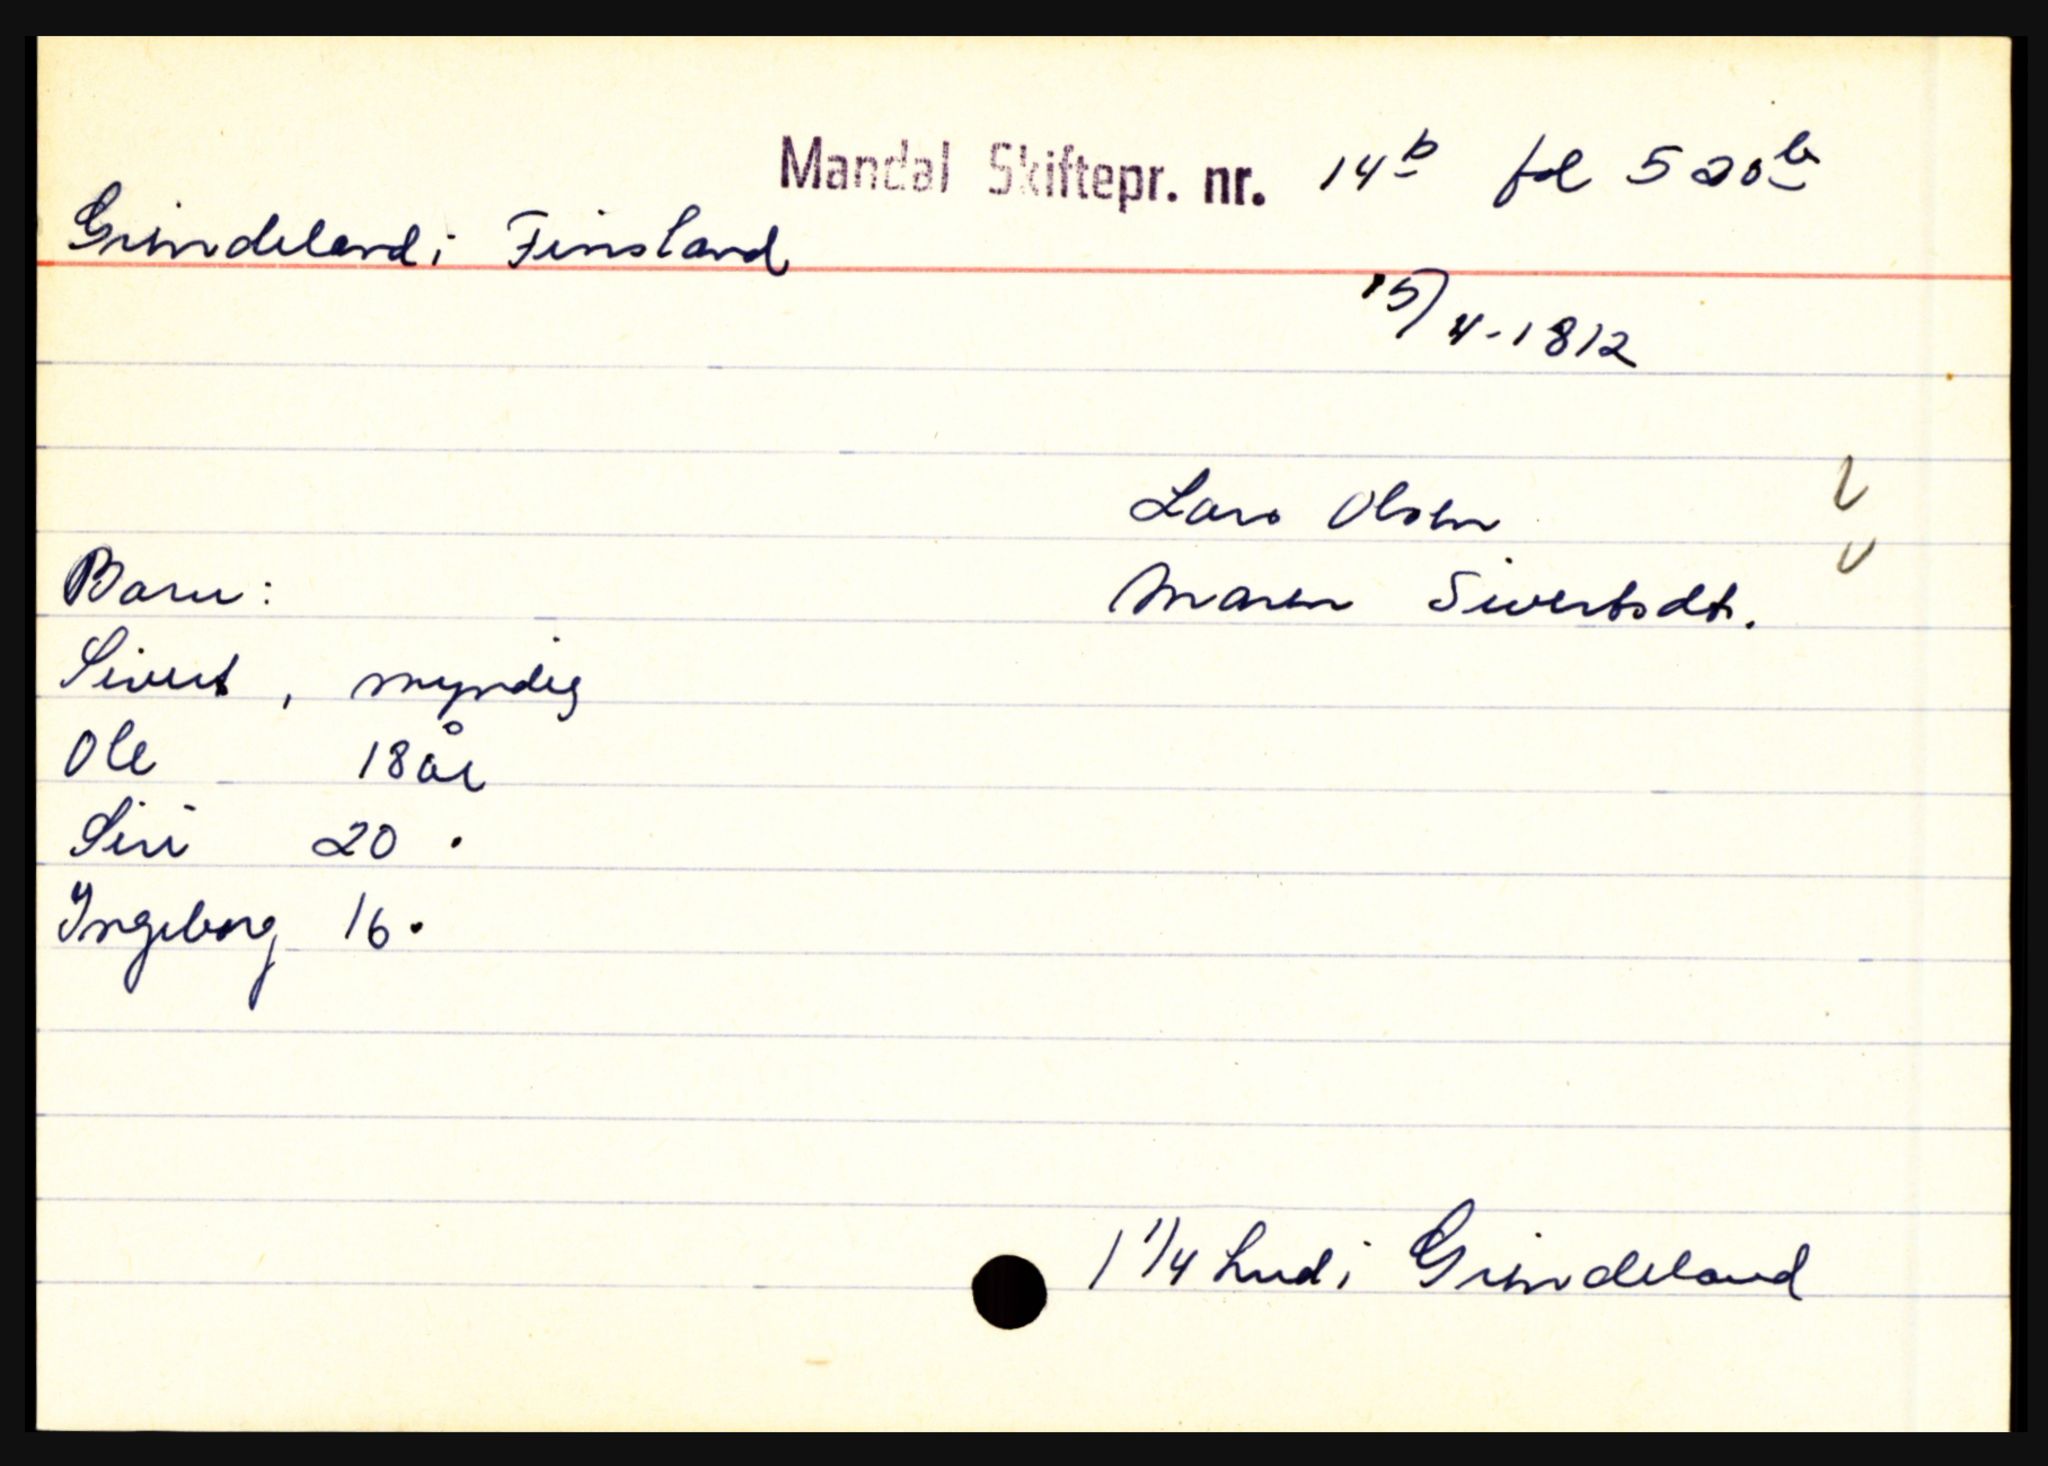 Mandal Skiftepr. nr. 14b fol 520b
Grindeland i Finsland
15/4-1812
Lars Olsen
Barn:
Maren Sivertsdt.
Sivert, myndig
Ole 18 år
Siri 20 "
Ingeborg 16 "
1 1/4 hud i Grindeland